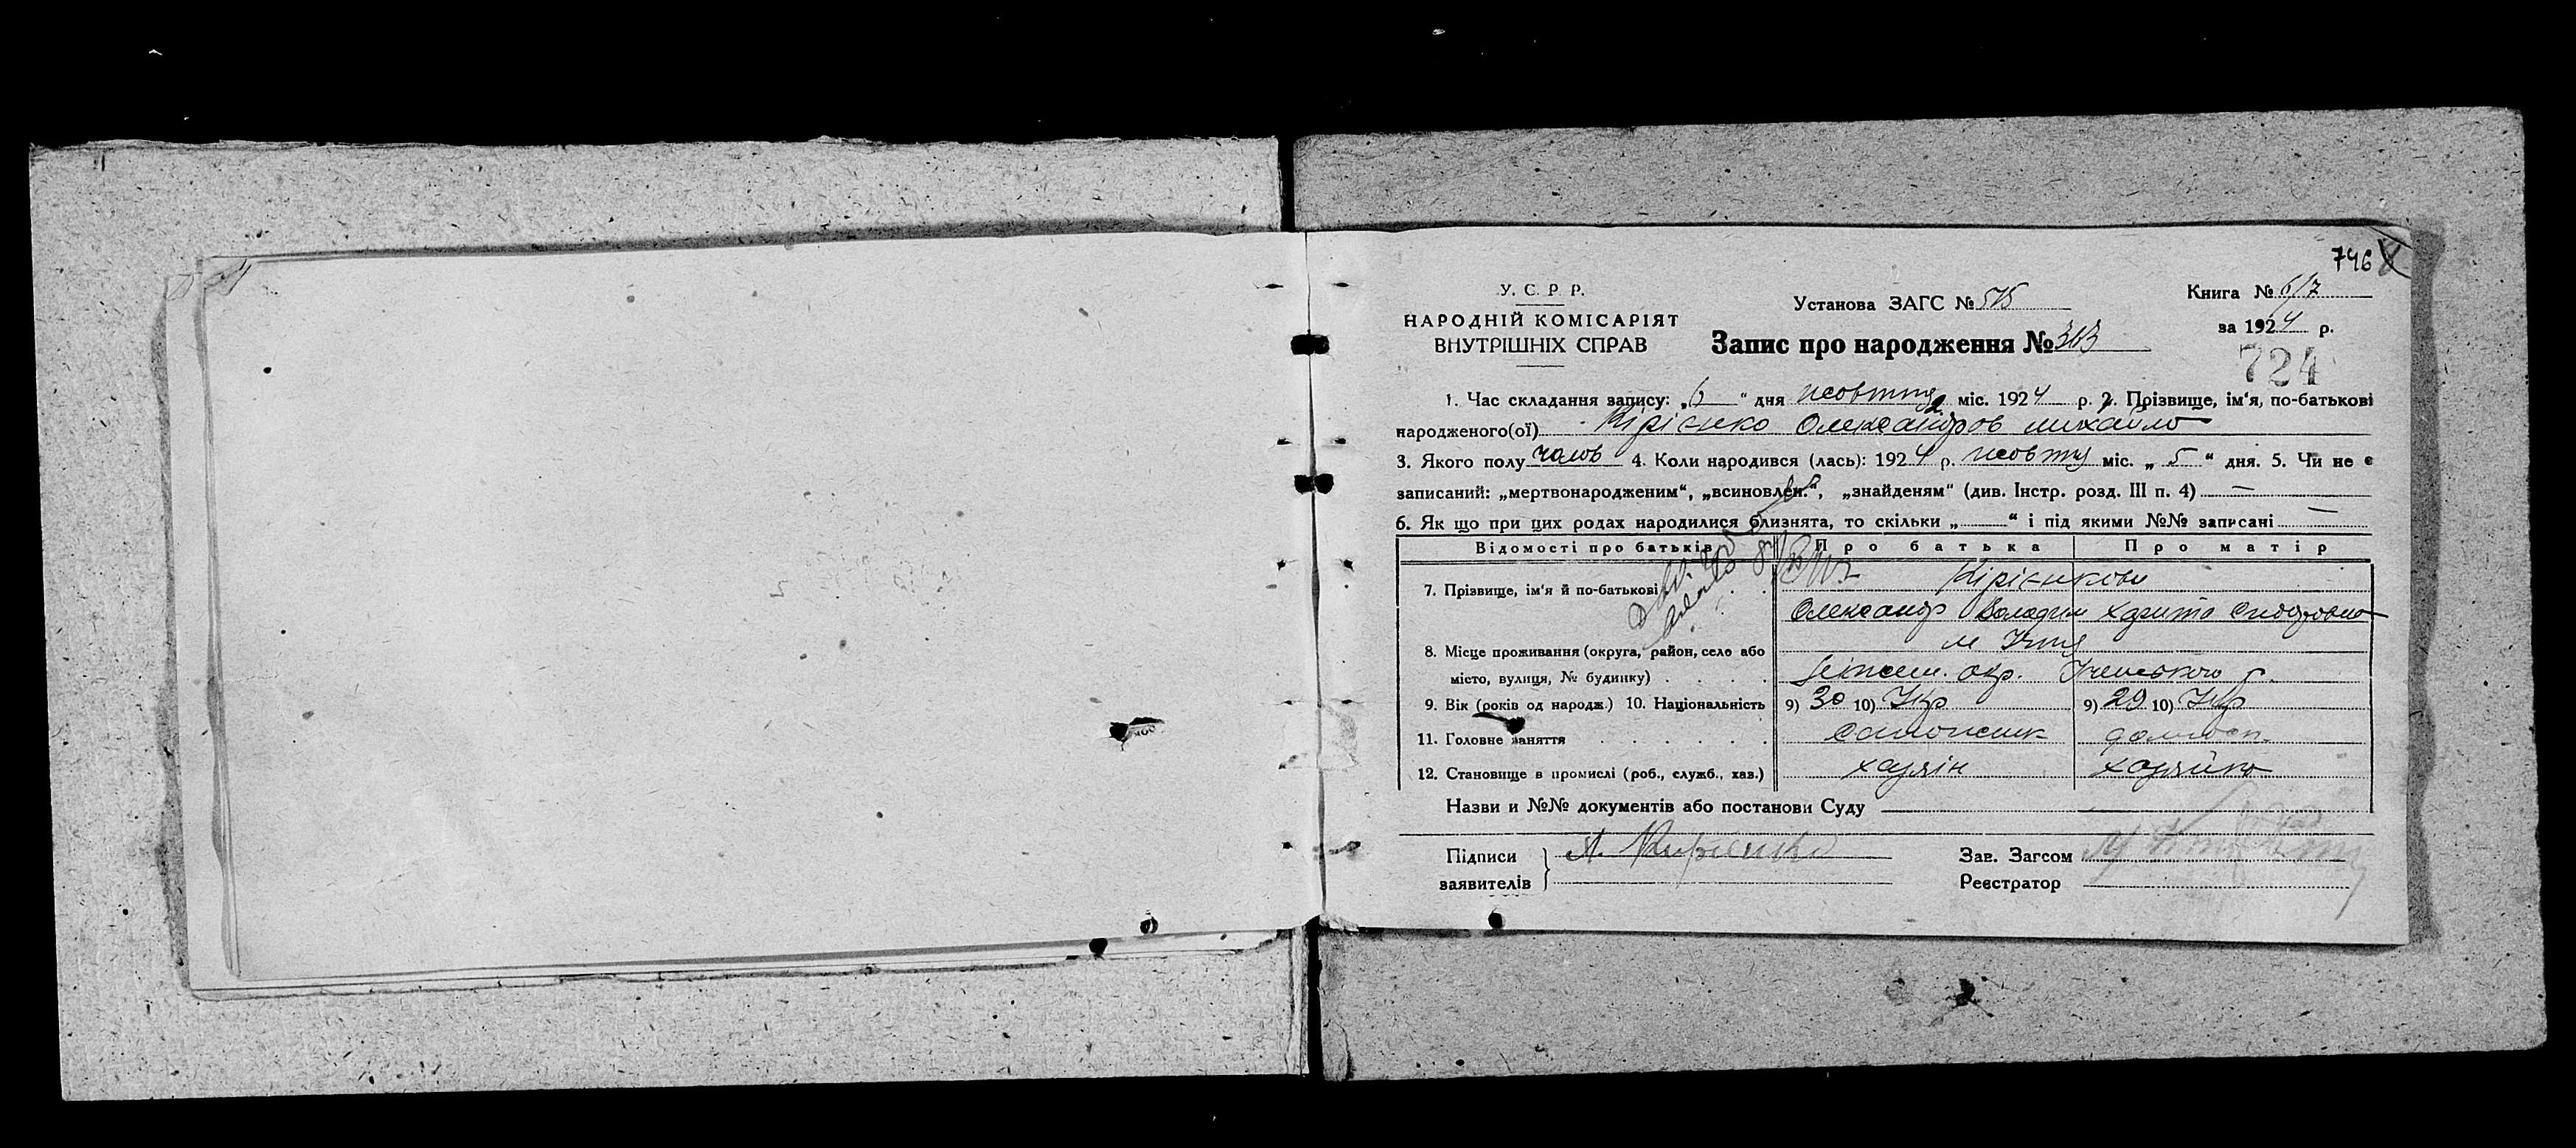 746
У. С. Р. Р.
НАРОДНІЙ КОМІСАРІЯТ
ВНУТРІШНІХ СПРАВ
Установа ЗАГС № 515
Запис про народження № 363
Книга № 6/7
за 1924 р.
724
1. Час складання запису: „6“ дня жовтня міс. 1924 р. 2. Прізвище, ім'я, по-батькові
народженого(ої) Кірієнко Олександров Михайло
3. Якого полу чолов 4. Коли народився (лась): 1924 р. жовтня міс. „5“ дня. 5. Чи не є
записаний: „мертвонародженим“, „всиновлен.“, „знайденям“ (див. Інстр. розд. III п. 4) —
6. Як що при цих родах народилися близнята, то скільки „ “ і під якими №№ записані —
Відомості про батьків Про батька Про матір
7. Прізвище, ім'я й по-батькові Кірієнкови
Олександр Володим Харита
м Ічня
8. Місце проживання (округа, район, село або
місто, вулиця, № будинку) окр. Ічнянського р.
9. Вік (років од народж.) 10. Національність 9) 30 10) Укр 9) 29 10) Укр
11. Головне заняття
12. Становище в промислі (роб., служб., хаз.) хазяїн хазяйка
Назви и №№ документів або постанови Суду
Підписи заявителів А. Кириенко
Зав. Загсом
Реєстратор